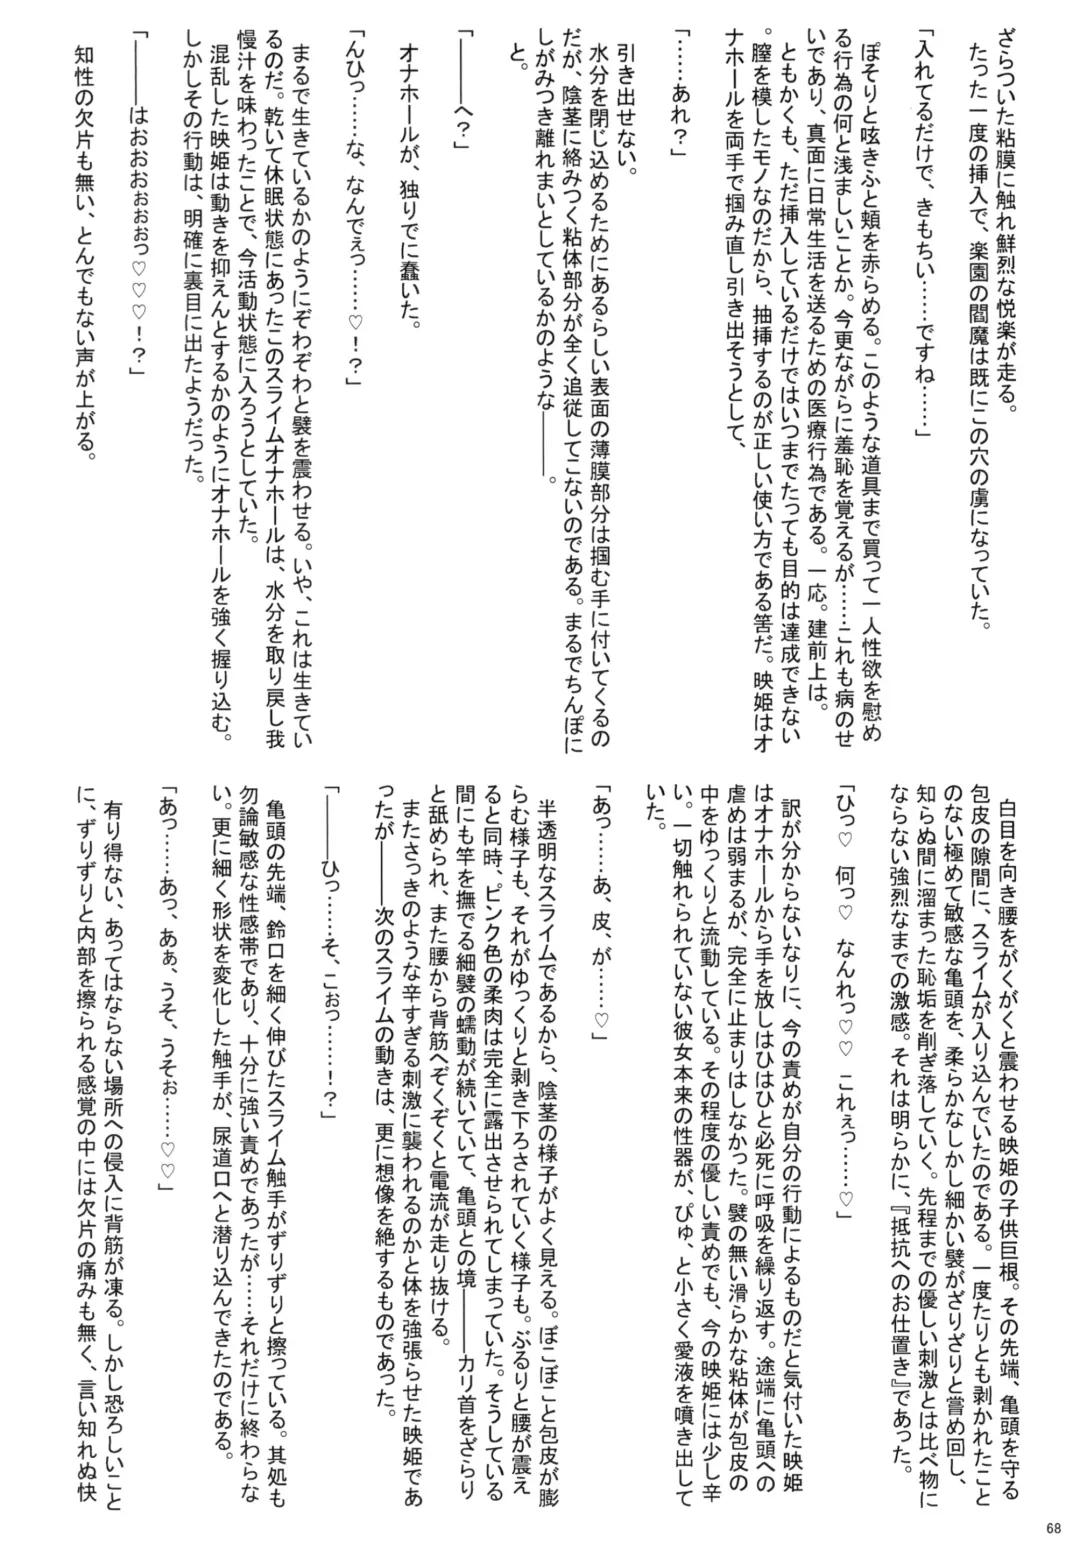 ざらついた粘膜に触れ鮮烈な悦楽が走る。
たった一度の挿入で、楽園の閻魔は既にこの穴の虜になっていた。
「入れてるだけで、きもちい……ですね……」
ぽそりと呟きふと頬を赤らめる。このような道具まで買って一人性欲を慰め
る行為の何と浅ましいことか。今更ながらに羞恥を覚えるが……これも病のせ
いであり、真面に日常生活を送るための医療行為である。一応。建前上は。
ともかくも、ただ挿入しているだけではいつまでたっても目的は達成できない
。膣を模したモノなのだから、抽挿するのが正しい使い方である筈だ。映姫はオ
ナホールを両手で掴み直し引き出そうとして、
「……あれ？」
引き出せない。
水分を閉じ込めるためにあるらしい表面の薄膜部分は掴む手に付いてくるの
だが、陰茎に絡みつく粘体部分が全く追従してこないのである。まるでちんぽに
しがみつき離れまいとしているかのような――――。
と。
「――――へ？」
オナホールが、独りでに蠢いた。
「んひっ……な、なんでぇっ……♡！？」
まるで生きているかのようにぞわぞわと襞を震わせる。いや、これは生きてい
るのだ。乾いて休眠状態にあったこのスライムオナホールは、水分を取り戻し我
慢汁を味わったことで、今活動状態に入ろうとしていた。
混乱した映姫は動きを抑えんとするかのようにオナホールを強く握り込む。
しかしその行動は、明確に裏目に出たようだった。
「――――はおおおぉぉぉぉっ♡♡♡！？」
知性の欠片も無い、とんでもない声が上がる。
白目を向き腰をがくがくと震わせる映姫の子供巨根。その先端、亀頭を守る
包皮の隙間に、スライムが入り込んでいたのである。一度たりとも剥かれたこと
のない極めて敏感な亀頭を、柔らかなしかし細かい襞がざりざりと嘗め回し、
知らぬ間に溜まった恥垢を削ぎ落していく。先程までの優しい刺激とは比べ物に
ならない強烈なまでの激感。それは明らかに、『抵抗へのお仕置き』であった。
「ひっ♡　何っ♡　なんれっ♡♡　これぇっ……♡」
訳が分からないなりに、今の責めが自分の行動によるものだと気付いた映姫
はオナホールから手を放しはひはひと必死に呼吸を繰り返す。途端に亀頭への
虐めは弱まるが、完全に止まりはしなかった。襞の無い滑らかな粘体が包皮の
中をゆっくりと流動している。その程度の優しい責めでも、今の映姫には少し辛
い。一切触れられていない彼女本来の性器が、ぴゅ、と小さく愛液を噴き出して
いた。
「あっ……あ、皮、が……♡」
半透明なスライムであるから、陰茎の様子がよく見える。ぼこぼこと包皮が膨
らむ様子も、それがゆっくりと剥き下ろされていく様子も。ぶるりと腰が震え
ると同時、ピンク色の柔肉は完全に露出させられてしまっていた。そうしている
間にも竿を撫でる細襞の蠕動が続いていて、亀頭との境――――カリ首をざらり
と舐められ、また腰から背筋へぞくぞくと電流が走り抜ける。
またさっきのような辛すぎる刺激に襲われるのかと体を強張らせた映姫であ
ったが――――次のスライムの動きは、更に想像を絶するものであった。
「――――ひっ……そ、こぉっ……！？」
亀頭の先端、鈴口を細く伸びたスライム触手がずりずりと擦っている。其処も
勿論敏感な性感帯であり、十分に強い責めであったが……それだけに終わらな
い。更に細く形状を変化した触手が、尿道口へと潜り込んできたのである。
「あっ……あっ、あぁ、うそ、うそぉ……♡♡」
有り得ない、あってはならない場所への侵入に背筋が凍る。しかし恐ろしいこと
に、ずりずりと内部を擦られる感覚の中には欠片の痛みも無く、言い知れぬ快
68